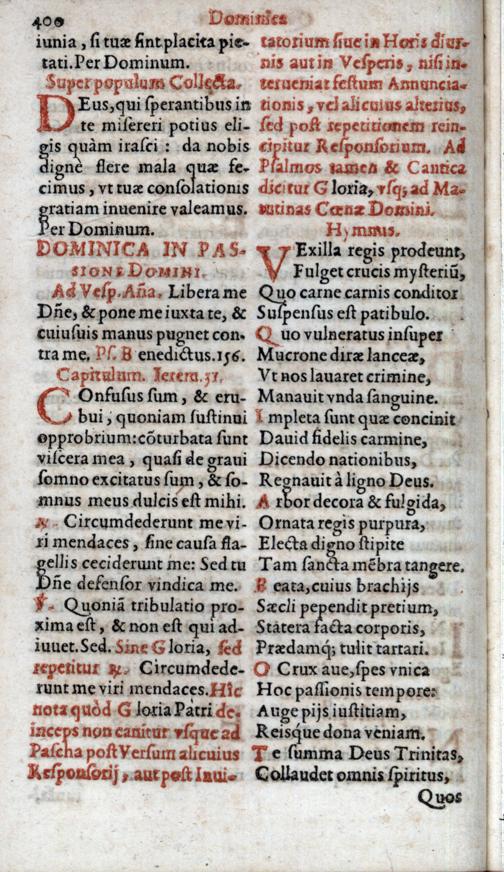 400
Dominica
iunia, ſi tuæ ſint placita pie-
tati. Per Dominum.
Super populum Collecta.
DEus, qui ſperantibus in
te miſereri potius eli-
gis quàm iraſci: da nobis
dignè flere mala quæ fe-
cimus, vt tuæ conſolationis
gratiam inuenire valeamus.
Per Dominum.
DOMINICA IN PAS-
SIONE DOMINI.
Ad Veſp. Aña. Libera me
Dñe, & pone me iuxta te, &
cuiuſuis manus pugnet con-
tra me. Pſ. Benedictus. 156.
Capitulum. Ierem. 31.
COnfuſus ſum, & eru-
bui, quoniam ſuſtinui
opprobrium: cõturbata ſunt
viſcera mea, quaſi de graui
ſomno excitatus ſum, & ſo-
mnus meus dulcis eſt mihi.
℟. Circumdederunt me vi-
ri mendaces, ſine cauſa fla-
gellis ceciderunt me: Sed tu
Dñe defenſor vindica me.
℣. Quoniã tribulatio pro-
xima eſt, & non eſt qui ad-
iuuet. Sed. Sine Gloria, ſed
repetitur ℟. Circumdede-
runt me viri mendaces. Hîc
nota quòd Gloria Patri de-
inceps non canitur vſque ad
Paſcha poſt Verſum alicuius
Reſponſorij, aut poſt Inui-
tatorium ſiue in Horis diur-
nis aut in Veſperis, niſi in-
terueniat feſtum Annuncia-
tionis, vel alicuius alterius,
ſed poſt repetitionem rein-
cipitur Reſponſorium. Ad
Pſalmos tamen & Cantica
dicitur Gloria, vſq; ad Ma-
tutinas Cœnæ Domini.
Hymnus.
VExilla regis prodeunt,
Fulget crucis myſteriũ,
Quo carne carnis conditor
Suſpenſus eſt patibulo.
Quo vulneratus inſuper
Mucrone diræ lanceæ,
Vt nos lauaret crimine,
Manauit vnda ſanguine.
Impleta ſunt quæ concinit
Dauid fidelis carmine,
Dicendo nationibus,
Regnauit à ligno Deus.
Arbor decora & fulgida,
Ornata regis purpura,
Electa digno ſtipite
Tam ſancta mẽbra tangere.
Beata, cuius brachijs
Sæcli pependit pretium,
Statera facta corporis,
Prædamq; tulit tartari.
O Crux aue, ſpes vnica
Hoc paſſionis tempore:
Auge pijs iuſtitiam,
Reiſque dona veniam.
Te ſumma Deus Trinitas,
Collaudet omnis ſpiritus,
Quos